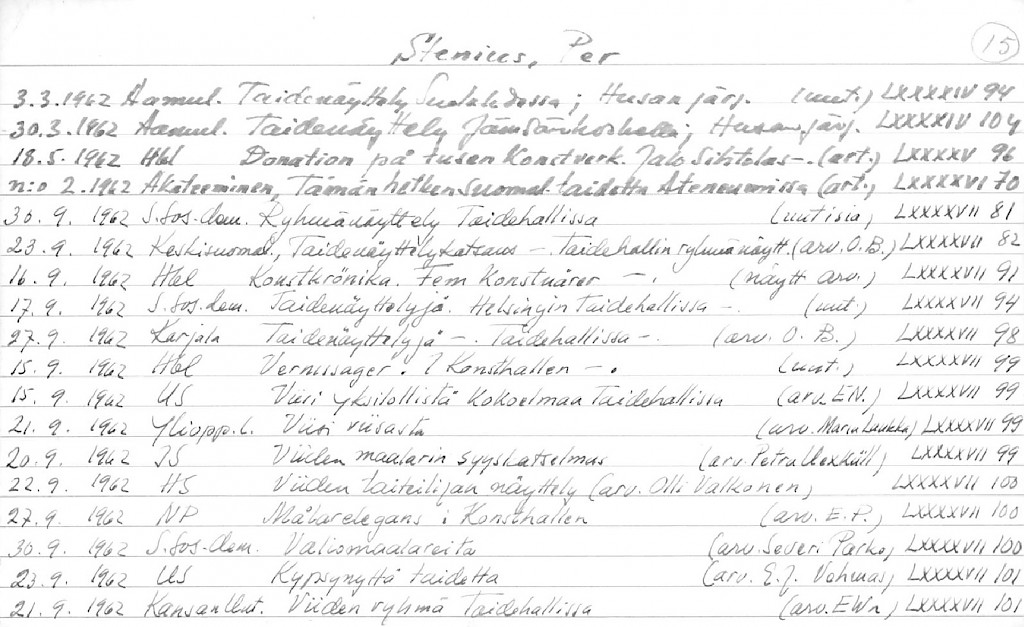 Stenius, Per
15
3.3.1962 Aamul. Taidenäyttely Suolahdessa; Husan järj. (uut.) LXXXXIV 94
30.3.1962 Aamul. Taidenäyttely Jämsänkoskella; Husan järj. LXXXXIV 104
18.5.1962 Hbl Donation på tusen Konstverk. Jalo Sihtolas -. (art.) LXXXXV 96
n:o 2.1962 Akateeminen, Tämän hetken Suomal. taidetta Ateneumissa (art.) LXXXXVI 70
30.9. 1962 S.Sos-dem. Ryhmänäyttely Taidehallissa (uutisia) LXXXXVII 81
23.9. 1962 Keskisuomal., Taidenäyttelykatsaus - Taidehallin ryhmänäytt. (arv. O.B.) LXXXXVII 82
16.9. 1962 Hbl Konstkrönika. Fem Konstnärer -. (näytt arv.) LXXXXVII 91
17.9. 1962 S.Sos.dem. Taidenäyttelyjä. Helsingin Taidehallissa -. (uut.) LXXXXVII 94
27.9. 1962 Karjala Taidenäyttelyjä -. Taidehallissa -. (arv. O. B.) LXXXXVII 98
15.9. 1962 Hbl Vernissager. I Konsthallen -. (uut.) LXXXXVII 99
15.9. 1962 US Viisi yksilöllistä Kokoelmaa Taidehallissa (arv. EN.) LXXXXVII 99
21.9. 1962 Yliopp.l. Viisi viisasta (arv. Maria Laukka) LXXXXVII 99
20.9. 1962 IS Viiden maalarin syyskatselmus (arv. Petra Uexküll) LXXXXVII 99
22.9. 1962 HS Viiden taiteilijan näyttely (arv. Olli Valkonen) LXXXXVII 100
27.9. 1962 NP Målarelegans i Konsthallen (arv. E.P.) LXXXXVII 100
30.9. 1962 S.Sos-dem. Valiomaalareita (arv. Severi Parko) LXXXXVII 100
23.9. 1962 US Kypsynyttä taidetta (arv. E.J. Vehmas) LXXXXVII 101
21.9. 1962 Kansan Uut. Viiden ryhmä Taidehallissa (arv. EWn) LXXXXVII 101